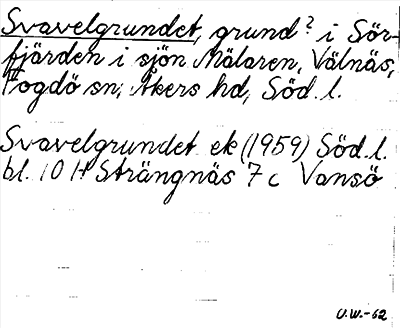 Svavelgrundet, grund? i Sör-
fjärden i sjön Mälaren, Välnäs,
Fogdö sn, Åkers hd, Söd. l.
Svavelgrundet ek (1959) Söd. l.
bl. 10 H Strängnäs 7 c Vansö
U.W.-62